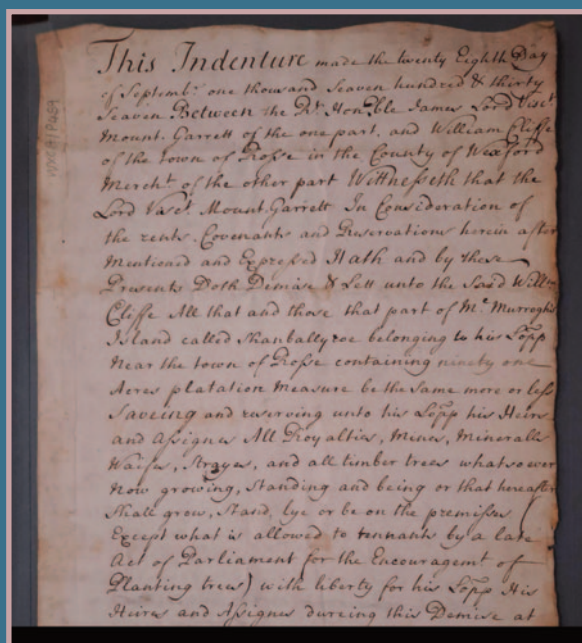 This Indenture made the twenty Eighth Day
of Septemb.r one thousand Seaven hundred & thirty
Seaven Between the R.t Hon.ble James Lord Visc.t
Mount.Garrett of the one part, and William Cliffe
of the town of Rosse in the County of Wexford
Merch.t of the other part Wittnesseth that the
Lord Visc.t Mount.Garrett In Consideration of
the rents. Covenants and Reservations herein after
Mentioned and Expressed Hath and by these
Presents Doth Demise & Lett unto the Said Will.m
Cliffe All that and those that part of M.c Murroghs
Island called Shanballyroe belonging to his Lopp
Near the town of Rosse containing ninety one
Acres platation Measure be the Same more or less
Saveing and reserving unto his Lopp his Heirs
and Assignes All Royalties, Mines, Mineralls
Waifes, Strayes, and all timber trees what so ever
Now growing, Standing and being or that hereafter
Shall grow, Stand, lye or be on the premisses
Except what is allowed to tennants by a late
Act of Parliament for the Encouragem.t of
Planting trees) with liberty for his Lopp His
Heires and Assignes dureing this Demise at